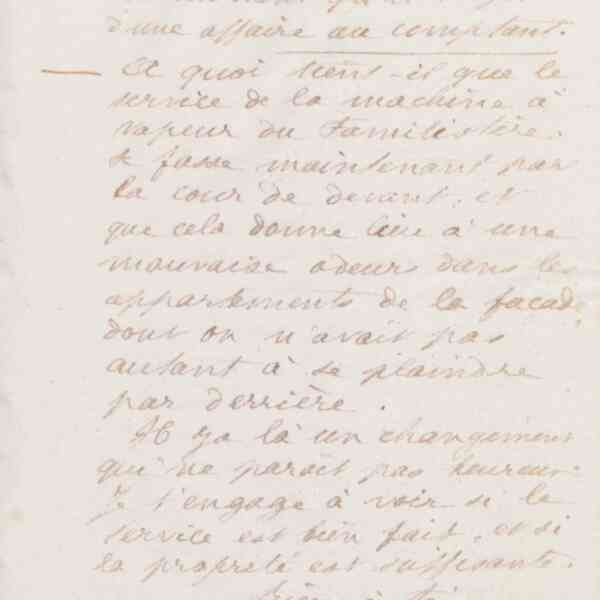 d'une affaire au comptant.
— A quoi tient-il que le
service de la machine à
vapeur du Familistère
se fasse maintenant par
la cour de devant, et
que cela donne lieu à une
mauvaise odeur dans les
appartements de la façade
dont on n'avait pas
autant à se plaindre
par derrière.
Il y a là un changement
qui ne paraît pas heureux.
Je t'engage à voir si le
service est bien fait, et si
la propreté est suffisante.